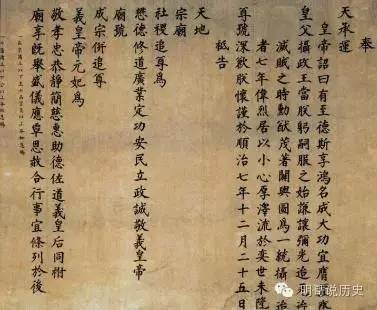 奉
天承運
皇帝詔曰有至德斯享鴻名成大功宜膺
皇父攝政王當朕躬嗣服之始謙讓彌光追
滅賊之時勳猷茂著闢輿圖為一統攝
者七年偉烈居以小心厚澤流於奕世未隆
尊號深歉朕懷謹於順治七年十二月二十五日
祗告
天地
宗廟
社稷追尊為
懋德修道廣業定功安民立政誠敬義皇帝
廟號
成宗併追尊
義皇帝元妃為
敬孝忠恭靜簡慈惠助德佐道義皇后同祔
廟享既舉盛儀應覃恩赦合行事宜條列於後
说历史